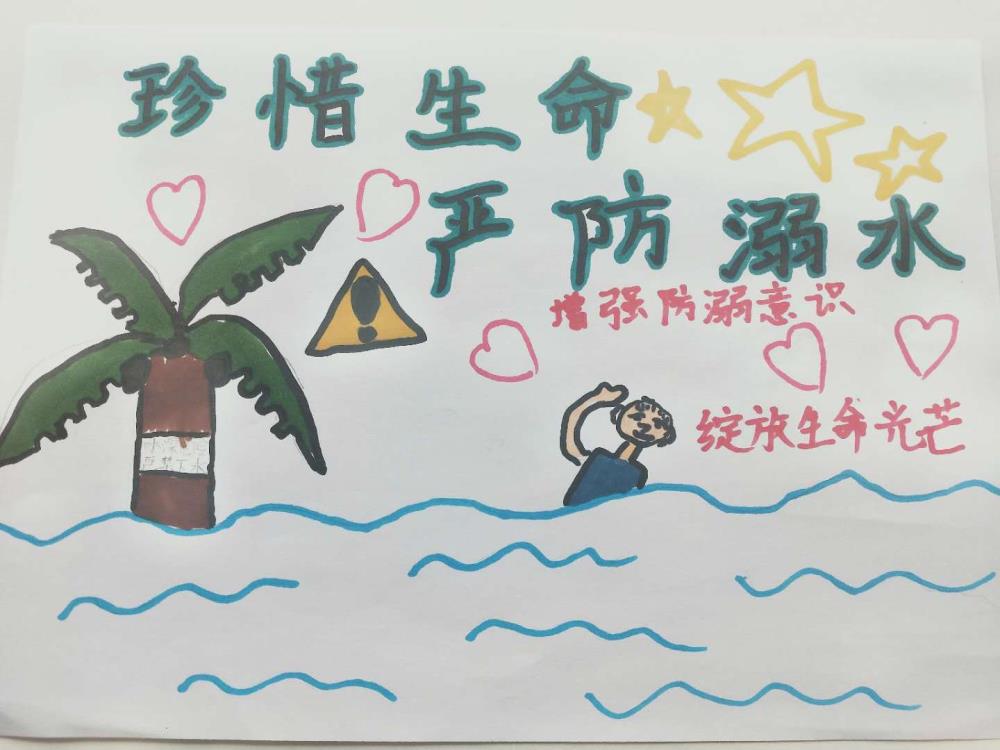 珍惜生命
严防溺水
增强防溺意识
绽放生命光芒